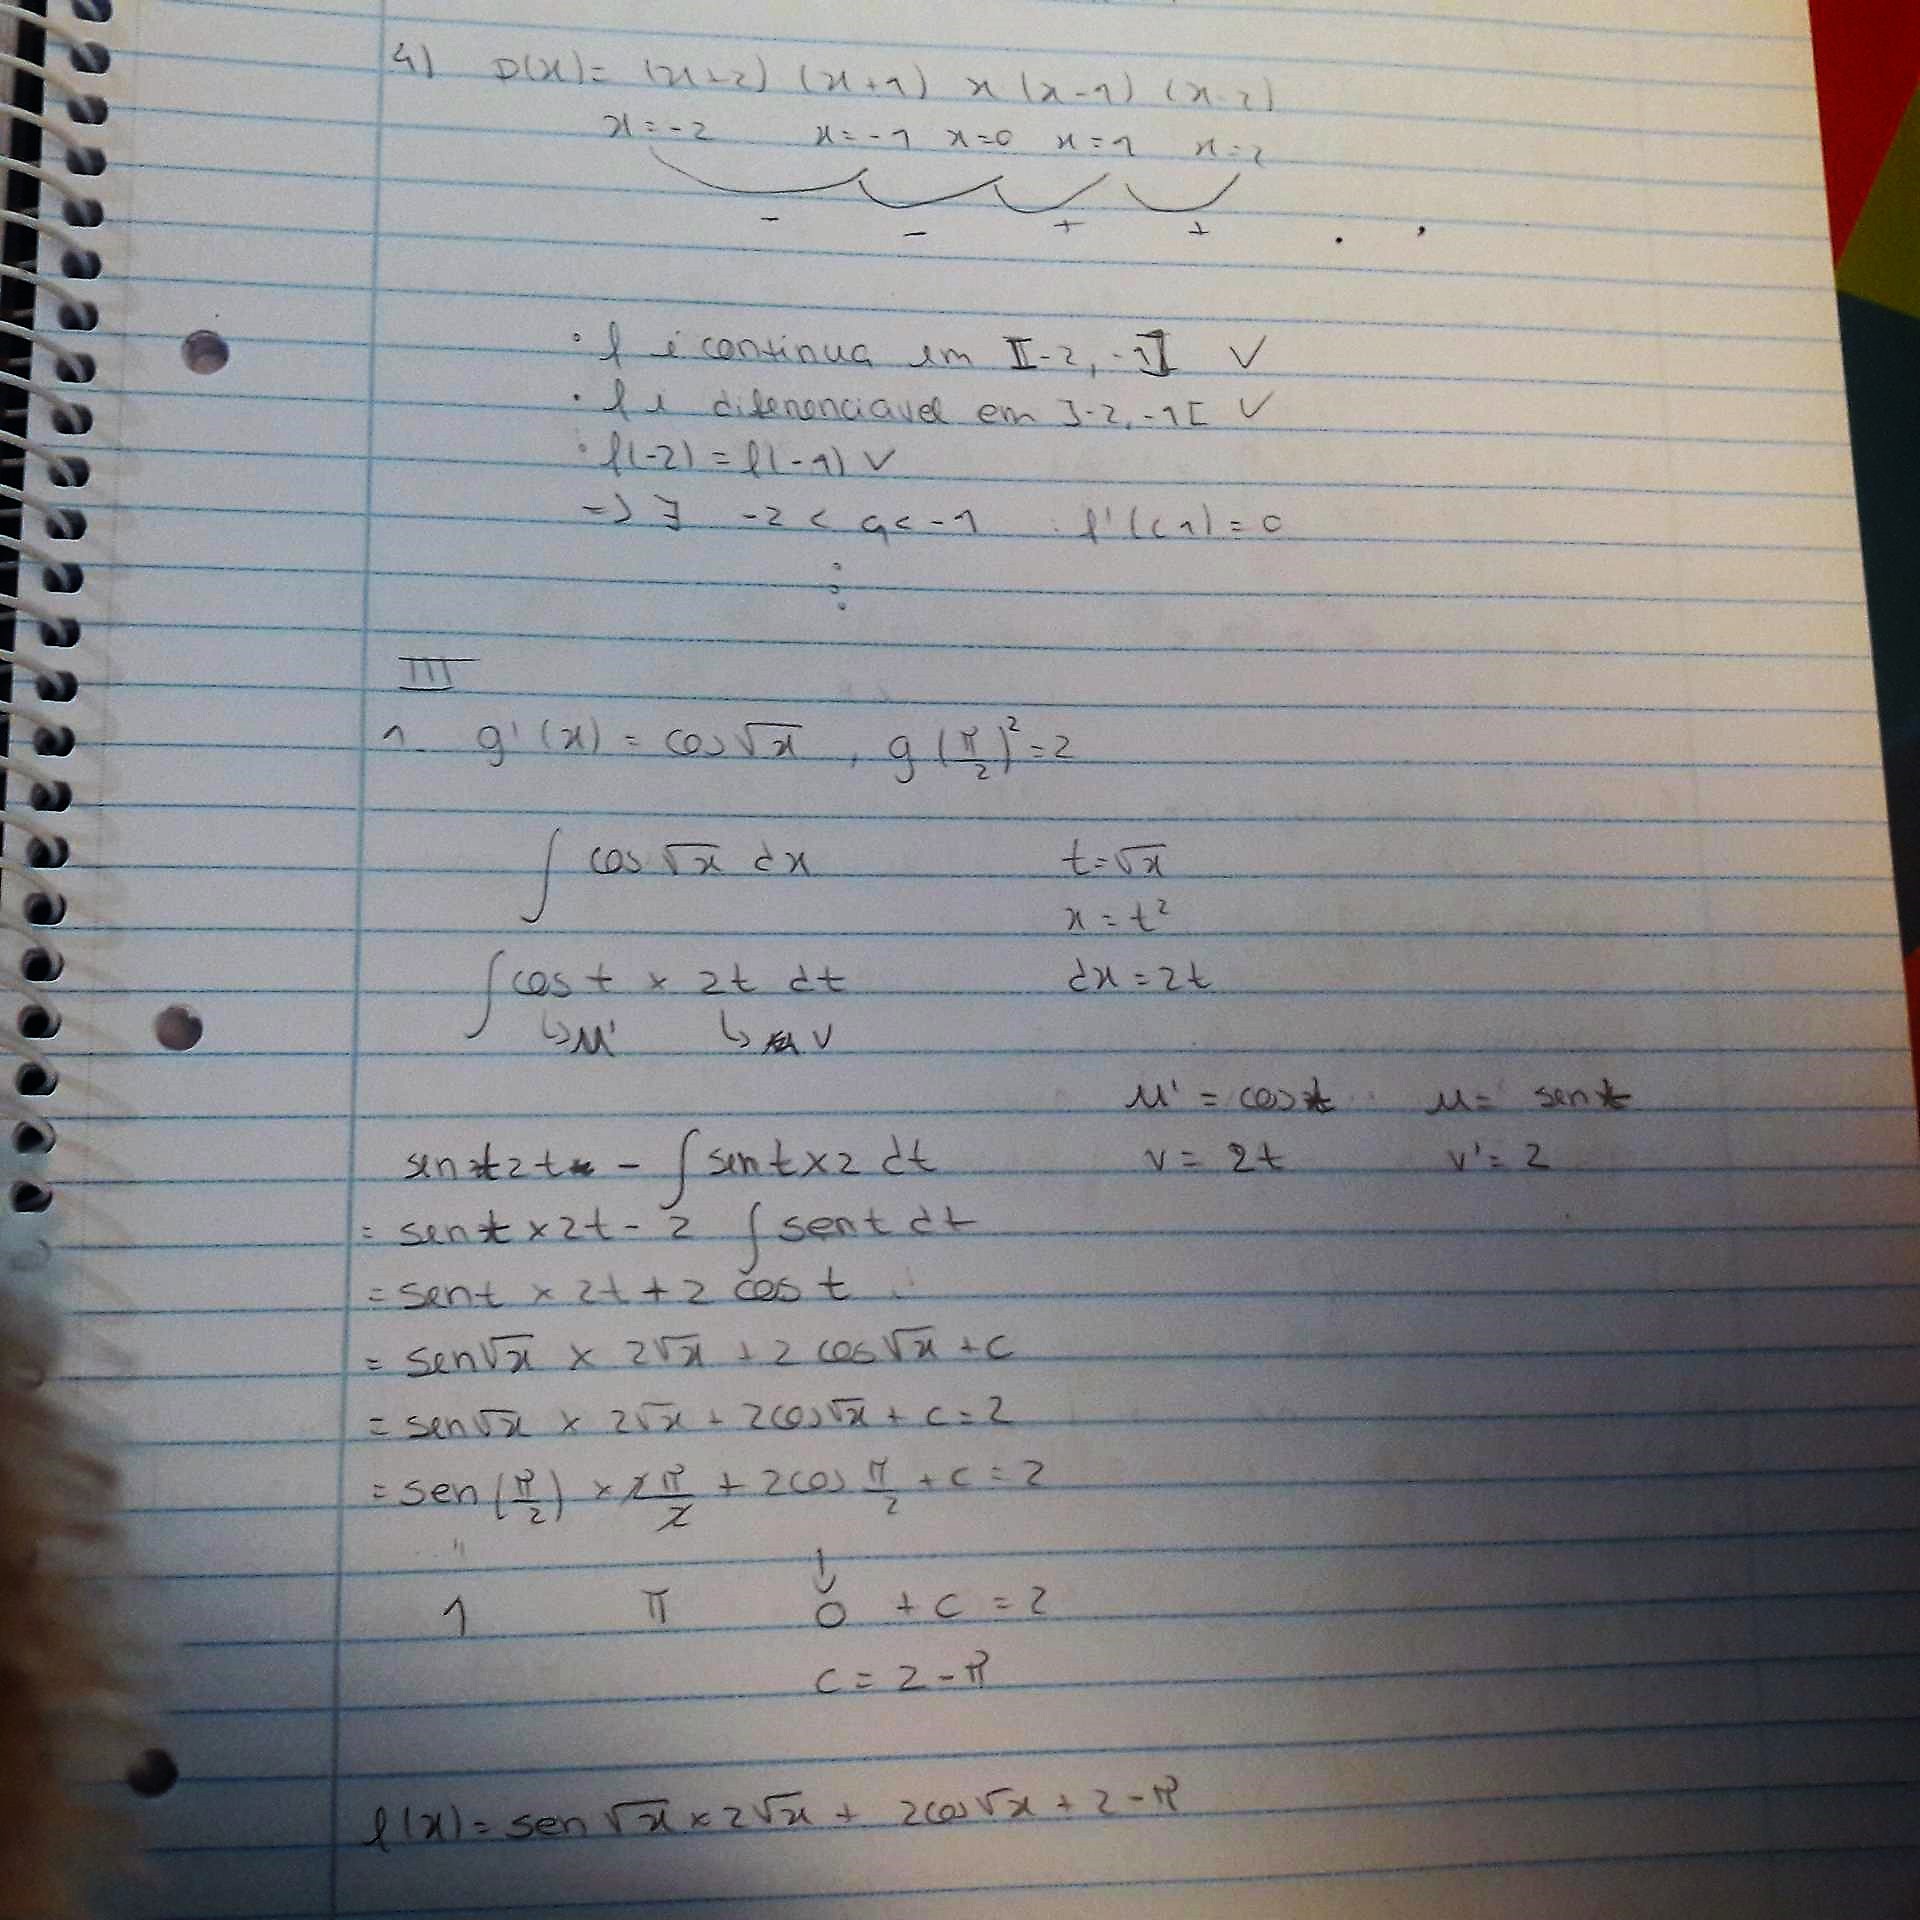 4) P(x) = (x+2) (x+1) x (x-1) (x-2)
x=-2 x=-1 x=0 x=1 x=2
- - + +
• f é continua em [-2, -1] V
• f é diferenciavel em ]-2, -1[ V
• f(-2) = f(-1) V
=> ∃ -2 < c1 < -1 : f'(c1) = 0
⋮
III
1. g'(x) = cos √x , g(π/2)² = 2
∫ cos √x dx t = √x
x = t²
∫ cos t × 2t dt dx = 2t
↳ u' ↳ v
u' = cos t u = sen t
sen t 2t - ∫ sen t × 2 dt v = 2t v' = 2
= sen t × 2t - 2 ∫ sen t dt
= sen t × 2t + 2 cos t
= sen √x × 2√x + 2 cos √x + c
= sen √x × 2√x + 2cos √x + c = 2
= sen (π/2) × 2π/2 + 2cos π/2 + c = 2
"
1 π 0 + c = 2
c = 2 - π
f(x) = sen √x × 2√x + 2cos √x + 2 - π